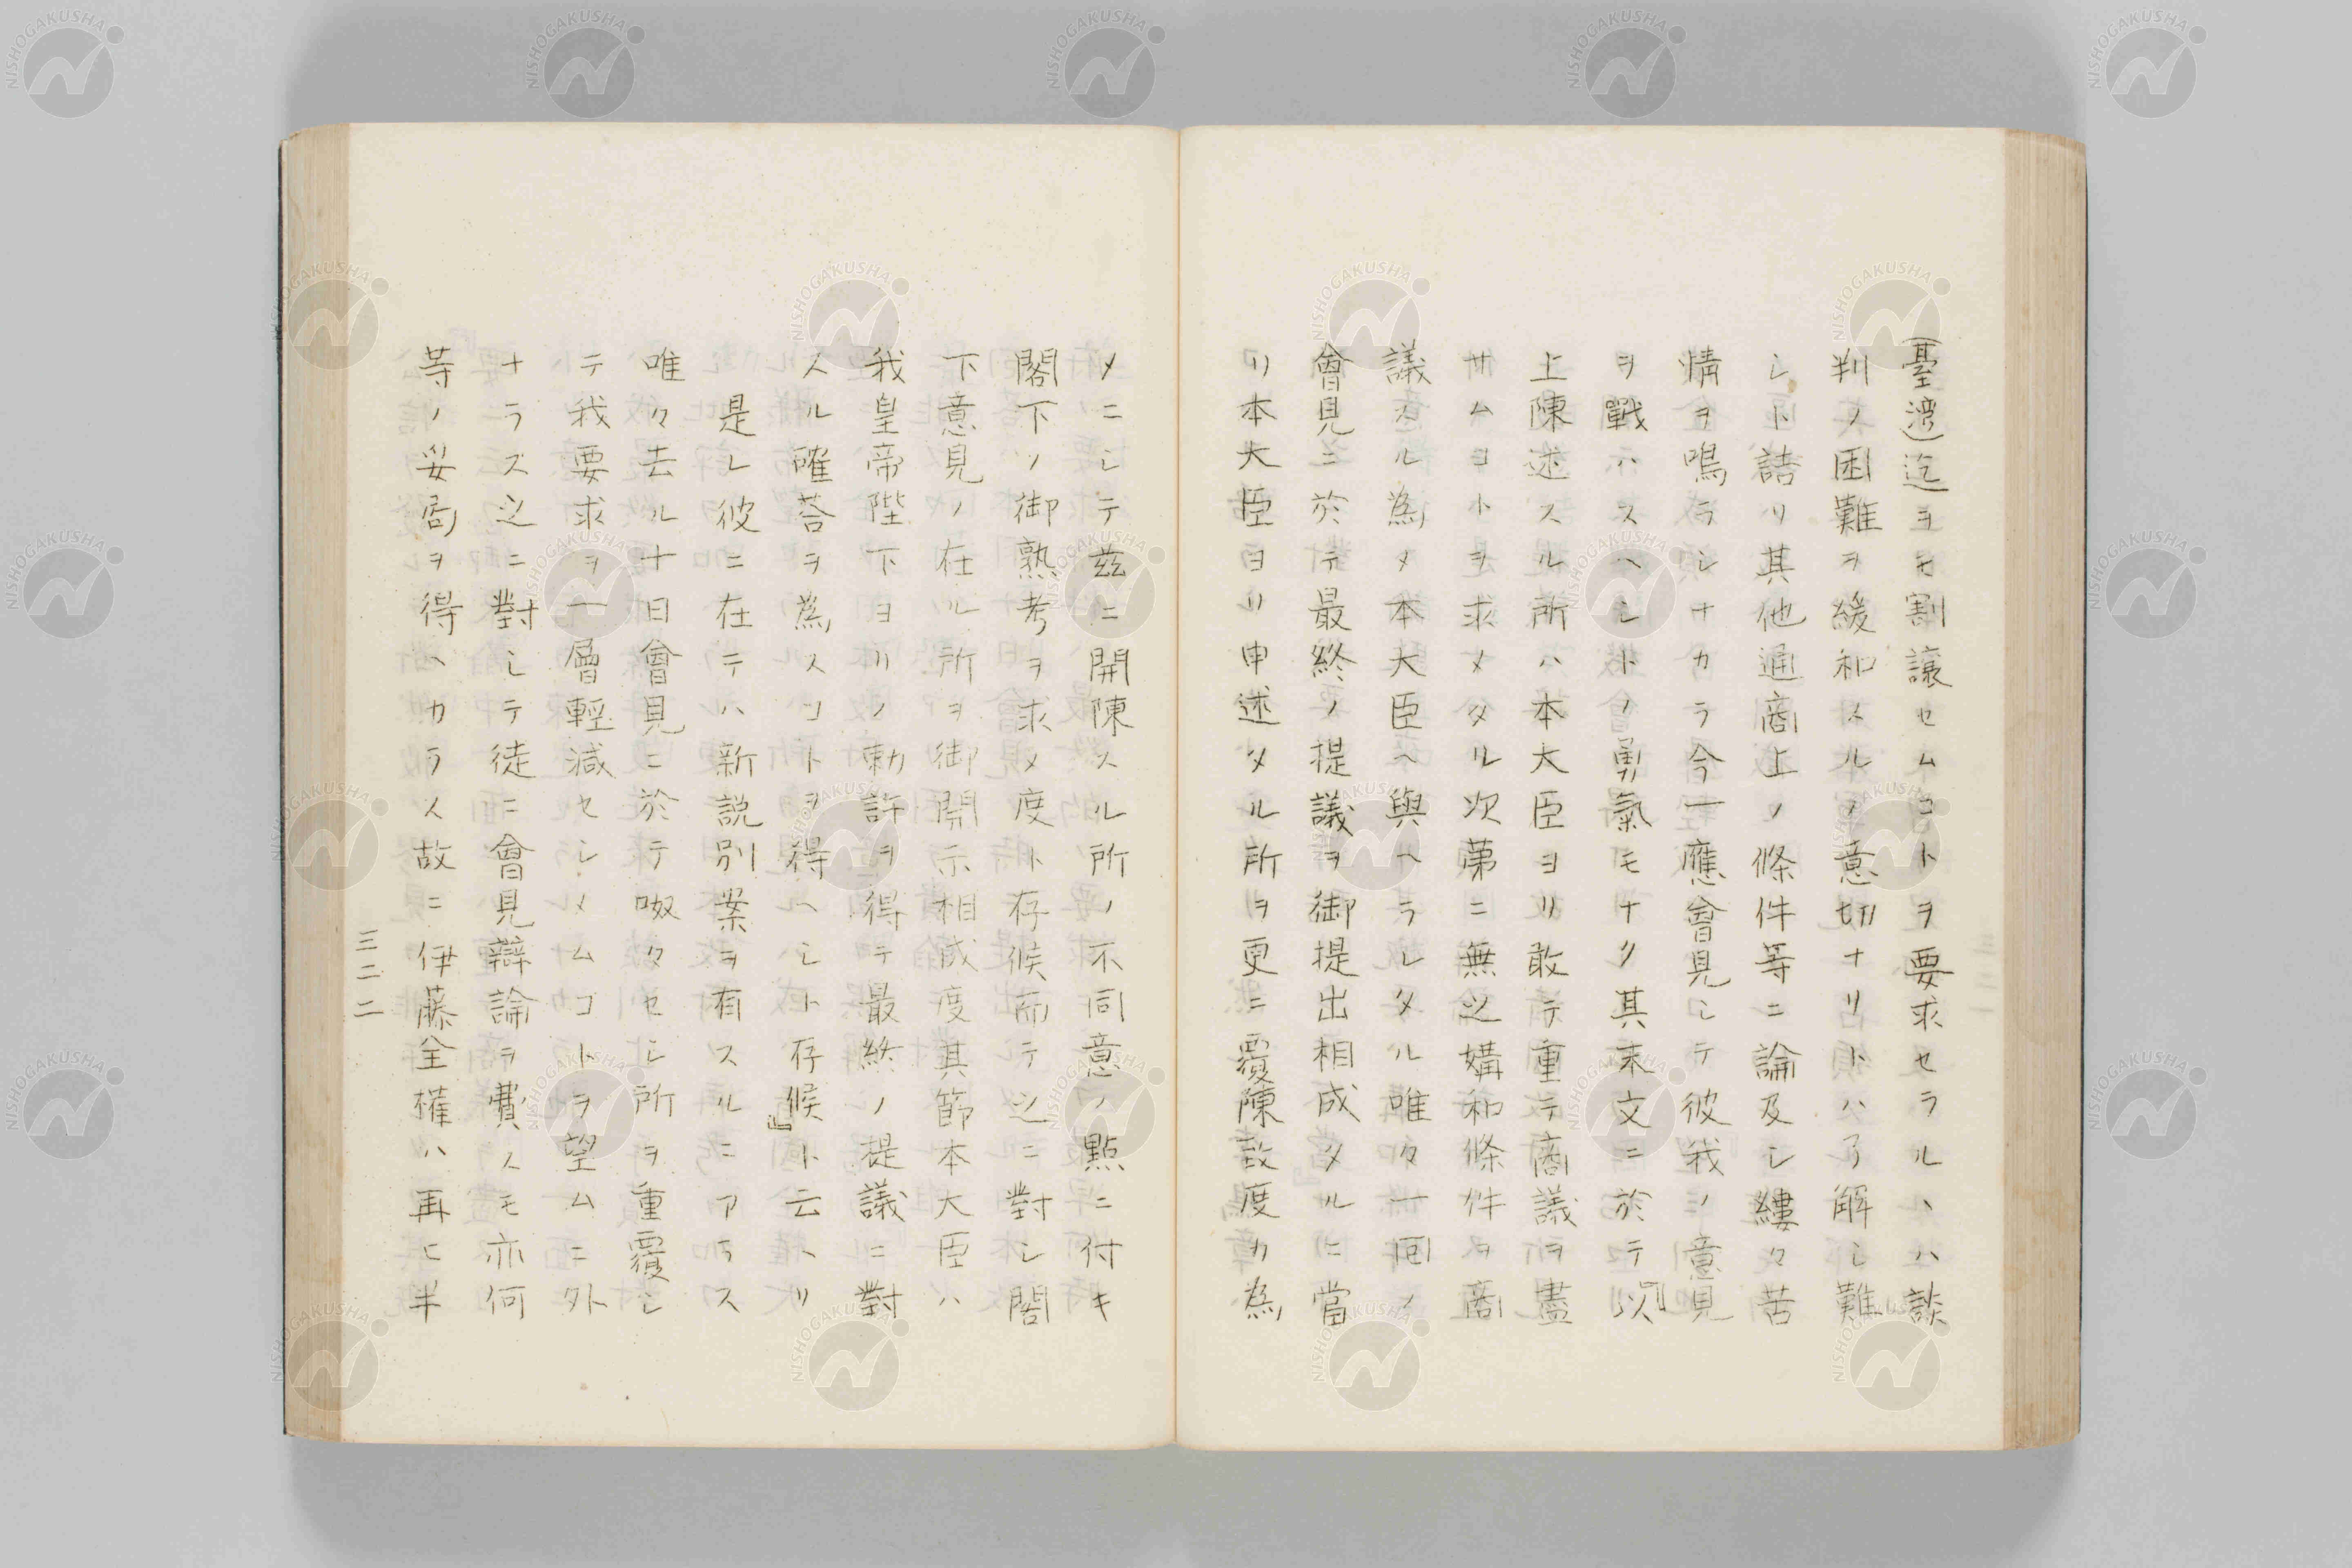 (臺湾)迄ヲモ割譲セムコトヲ要求セラルヽハ談
判ノ困難ヲ緩和スルノ意切ナリトハ了解シ難
シト詰リ其他通商上ノ條件等ニ論及シ縷々苦
情ヲ鳴ラシナカラ今一應會見シテ彼我ノ意見
ヲ戰ハスヘシトノ勇氣モナク其末文ニ於テ『以
上陳述スル所ハ本大臣ヨリ敢テ重テ商議ヲ盡
サムコトヲ求メタル次第ニ無之媾和條件ヲ商
議スル為メ本大臣ヘ與ヘラレタル唯々一回ノ
會見ニ於テ最終ノ提議ヲ御提出相成タルニ當
リ本大臣ヨリ申述タル所ヲ更ニ覆陳致度カ為
メニシテ茲ニ開陳スル所ノ不同意ノ點ニ付キ
閣下ノ御熟考ヲ求メ度ト存候而テ之ニ對シ閣
下意見ノ在ル所ヲ御開示相成度其節本大臣ハ
我皇帝陛下ヨリノ勅許ヲ得テ最終ノ提議ニ對
スル確荅ヲ為スコトヲ得ヘシト存候』ト云ヘリ
是レ彼ニ在テハ新説別案ヲ有スルニアラス
唯々去ル十日會見ニ於テ呶々セシ所ヲ重覆シ
テ我要求ヲ一層輕減セシメムコトヲ望ムニ外
ナラズ之ニ對シテ徒ニ會見辯論ヲ費スモ亦何
等ノ妥商ヲ得ヘカラス故ニ伊藤全権ハ再ヒ半
三二二
NISHOGAKUSHA